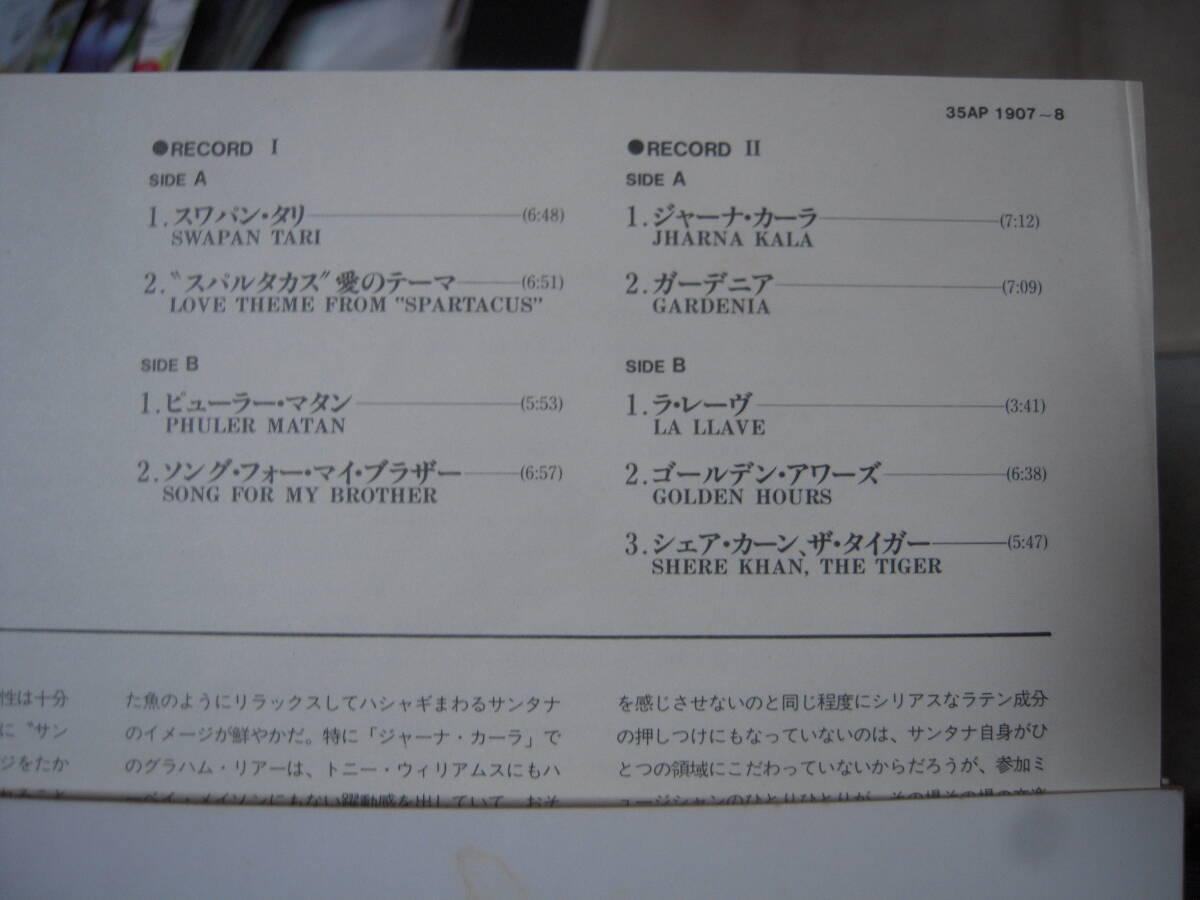 35AP 1907～8
●RECORD I
SIDE A
1.スワパン・タリ (6:48)
SWAPAN TARI
2.〝スパルタカス〟愛のテーマ (6:51)
LOVE THEME FROM "SPARTACUS"
SIDE B
1.ピューラー・マタン (5:53)
PHULER MATAN
2.ソング・フォー・マイ・ブラザー (6:57)
SONG FOR MY BROTHER
●RECORD II
SIDE A
1.ジャーナ・カーラ (7:12)
JHARNA KALA
2.ガーデニア (7:09)
GARDENIA
SIDE B
1.ラ・レーヴ (3:41)
LA LLAVE
2.ゴールデン・アワーズ (6:38)
GOLDEN HOURS
3.シェア・カーン、ザ・タイガー (5:47)
SHERE KHAN, THE TIGER
性は十分
に〝サン
ジをたか
た魚のようにリラックスしてハシャギまわるサンタナ
のイメージが鮮やかだ。特に「ジャーナ・カーラ」で
のグラハム・リアーは、トニー・ウィリアムスにもハ
ーベイ・メイソンにもない躍動感を出していて、おそ
を感じさせないのと同じ程度にシリアスなラテン成分
の押しつけにもなっていないのは、サンタナ自身がひ
とつの領域にこだわっていないからだろうが、参加ミ
ュージシャンのひとりひとりが、その場その場の音楽